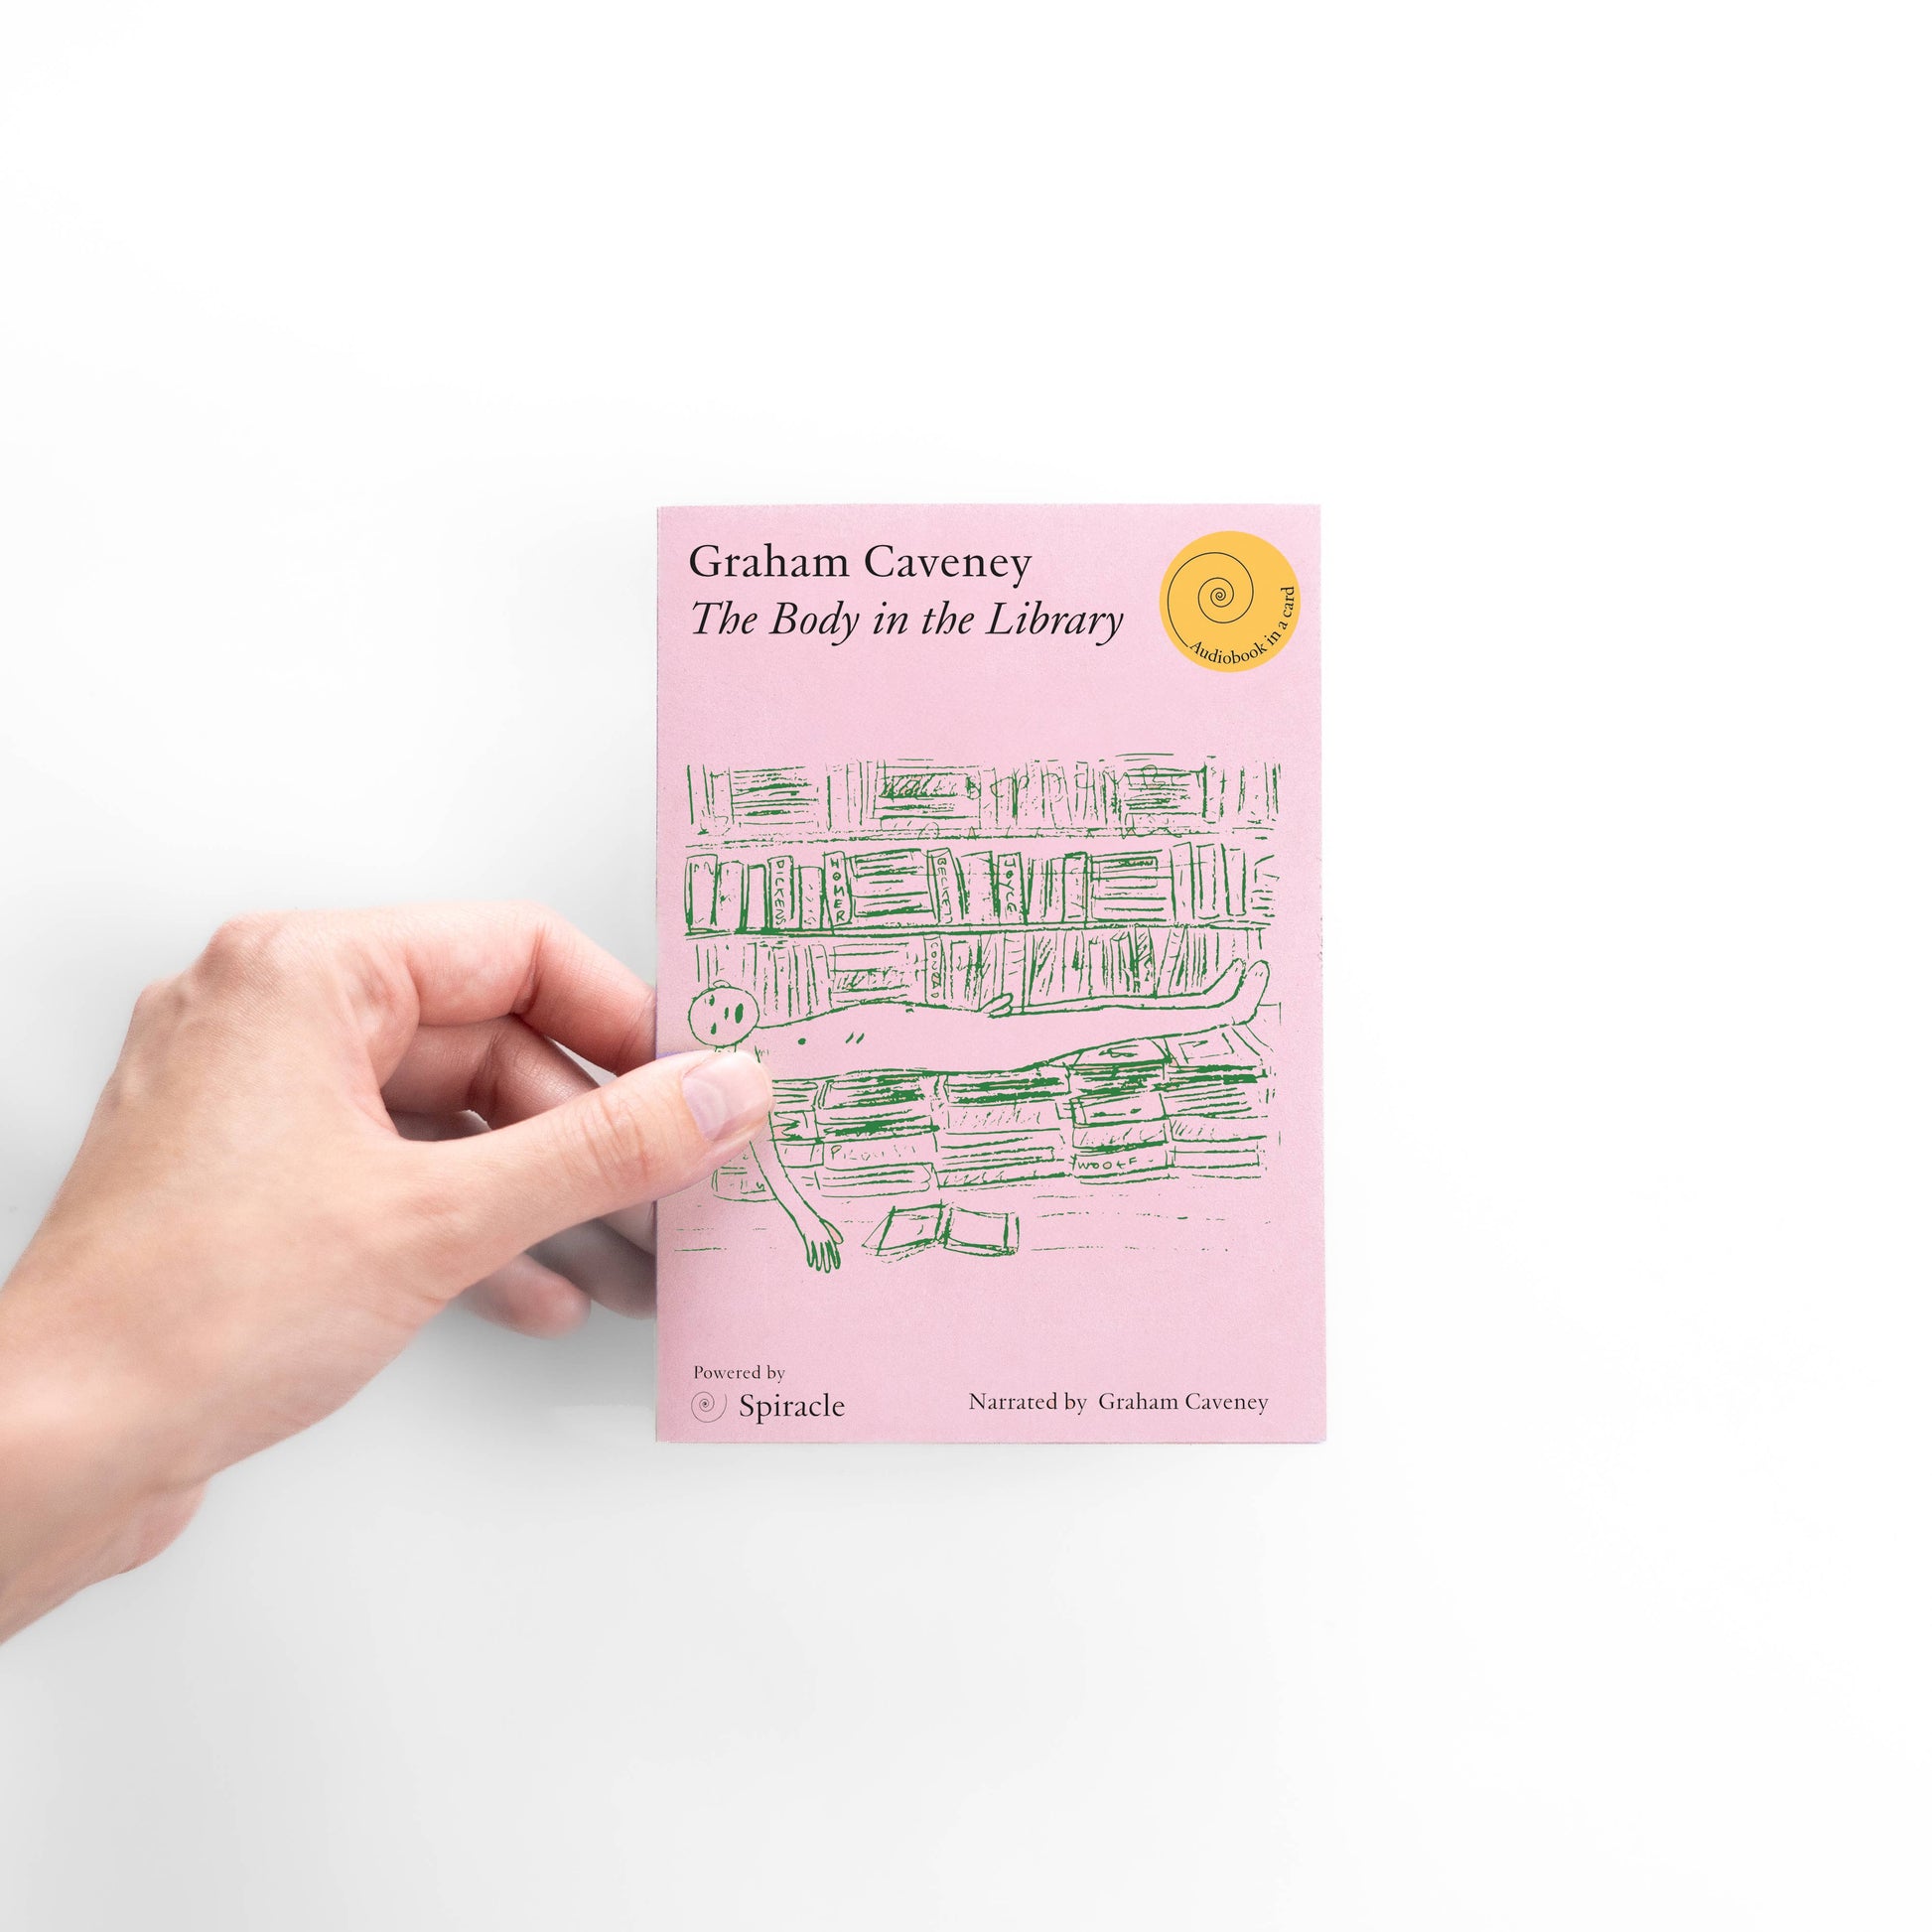 Graham Caveney
The Body in the Library
Audiobook in a card
DICKENS
HOMER
BECKETT
JOYCE
CONRAD
WOOLF
Powered by
Spiracle
Narrated by Graham Caveney